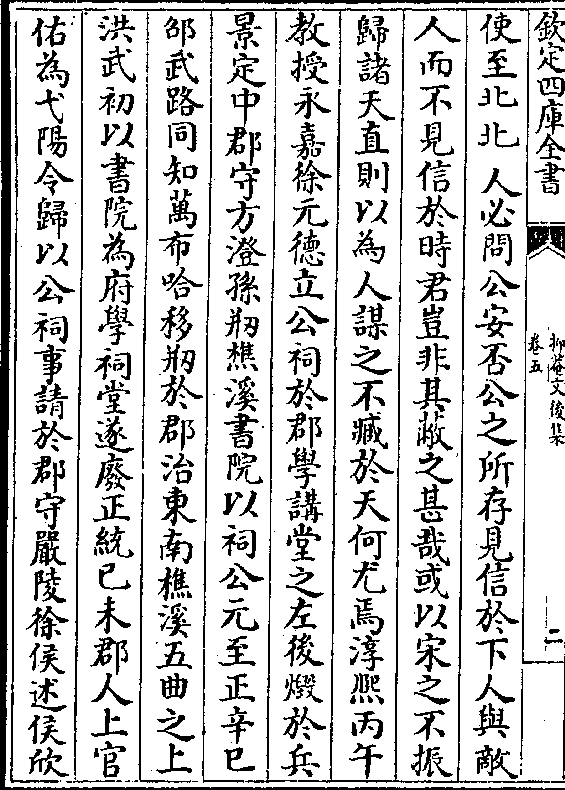 欽定四庫全書
抑菴文後集
卷五
二
使至北北 人必問公安否公之所存見信於下人與敵
人而不見信於時君豈非其蔽之甚哉或以宋之不振
歸諸天直則以為人謀之不臧於天何尤焉淳熙丙午
教授永嘉徐元德立公祠於郡學講堂之左後燬於兵
景定中郡守方澄孫剏樵溪書院以祠公元至正辛巳
邵武路同知萬布哈移剏於郡治東南樵溪五曲之上
洪武初以書院為府學祠堂遂廢正統己未郡人上官
佑為弋陽令歸以公祠事請於郡守嚴陵徐侯述侯欣